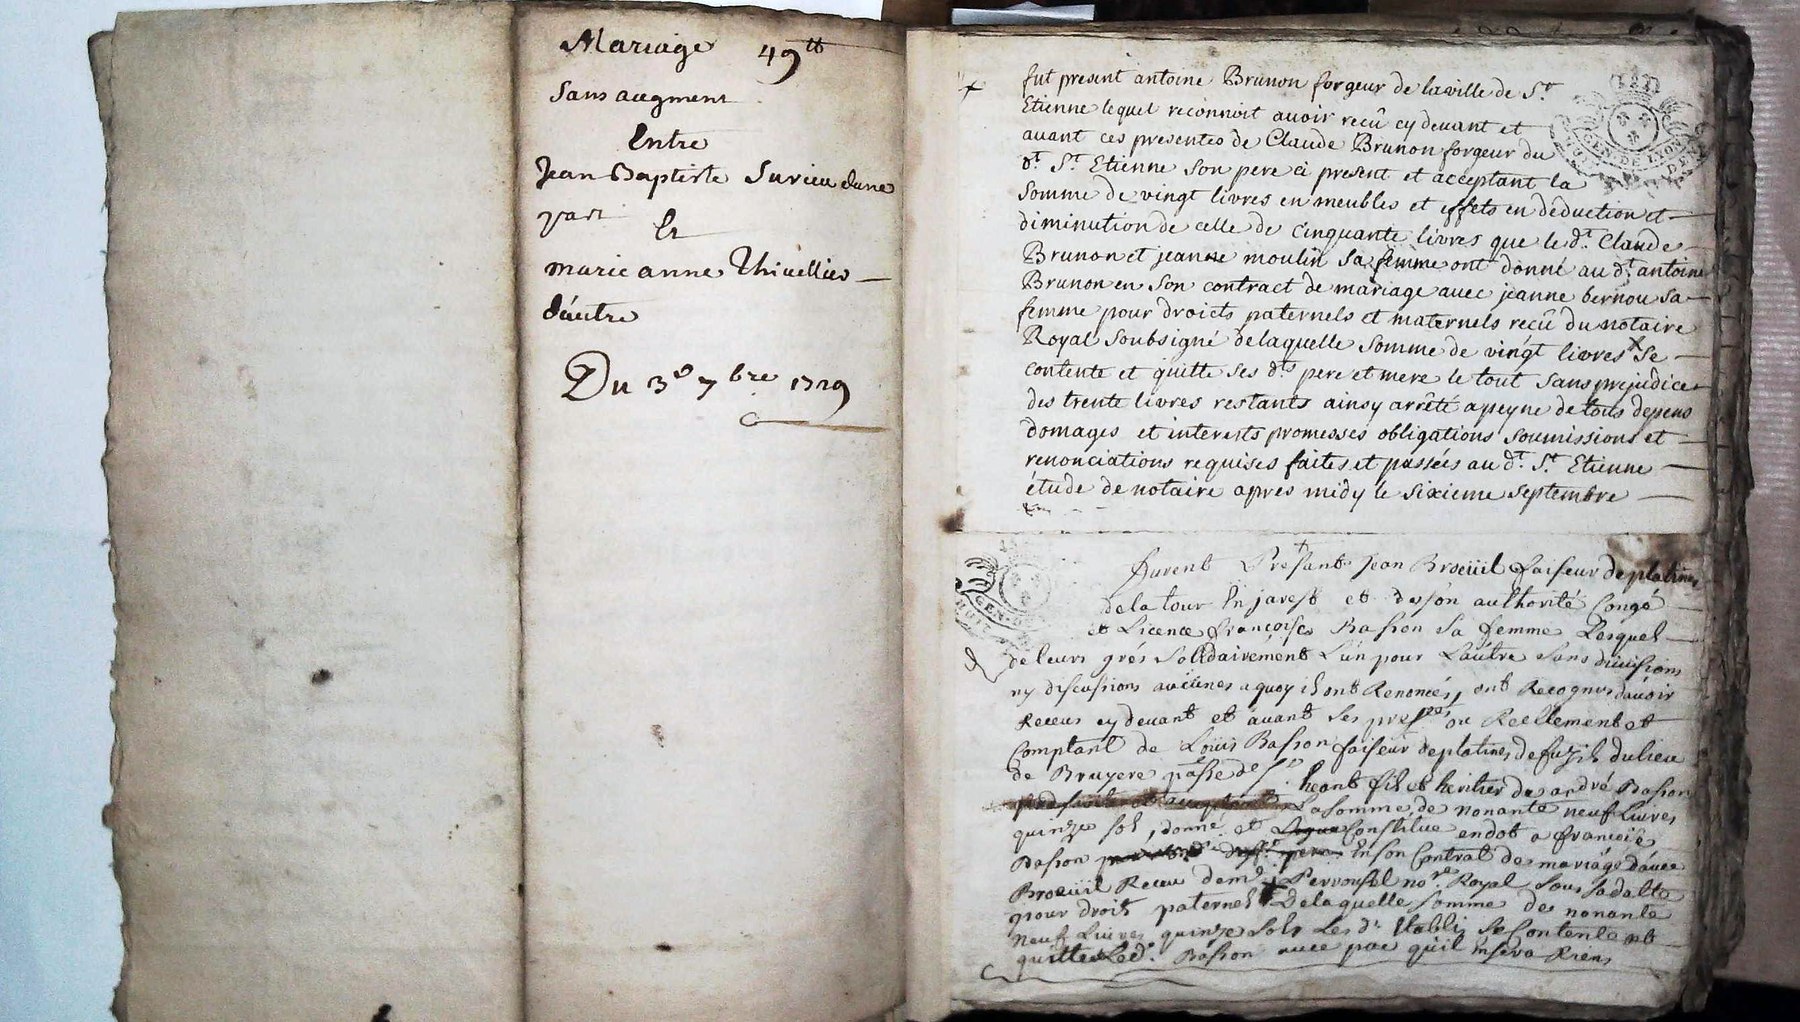 Mariage 49tt
Sans augment
Entre
Jean Baptiste Surieu dune
part Et
marie anne Thiuellier
dáutre
Du 3e 7bre 1729
fut present antoine Brunon forgeur de la ville de St
Etienne lequel reconnoit auoir recû cy deuant et
auant ces presentes de Claude Brunon forgeur du
dt St Etienne son pere à present et acceptant la
somme de vingt livres en meubles et effets en deduction et
diminution de celle de cinquante livres que le dt Claude
Brunon et jeanne moulin sa femme ont donné au dt antoine
Brunon en son contract de mariage auec jeanne bernou sa
femme pour droicts paternels et maternels recû du notaire
Royal soubsigné de laquelle somme de vingt livres se
contente et quitte ses dts pere et mere le tout sans prejudice
des trente livres restants ainsy arrêté a peyne de tous depens
domages et interests promesses obligations soumissions et
renonciations requises faites et passées au dt St Etienne
étude de notaire apres midy le sixieme septembre
GEN. DE LYON
furent Presant Jean Broeüil faiseur de platines
de la tour En jarest et de son authorité Congé
et Licence françoise Basson sa femme Lesquels
de leurs grés solidairement L'un pour Laûtre sans diuision
ny discussions aucunes a quoy ils ont Renoncés, ont Recognus dauoir
Receus cy deuant et auant ses presntes ou Reellement et
Comptant de Loüis Basson faiseur de platines de fuzils du lieu
de Bruyere
fils et heritier de andré Basson
La somme de nonante neuf Liures
quinze sols, donné et Constitüe en dot a françoise
Basson En son Contrat de mariage dauec
Broeüil Receu de me Royal
pour droits paternels De laquelle somme de nonante
neuf Liures quinze sols Les dts Establis se Contente et
quitte Led. Basson auec pac quil n'sera Rien